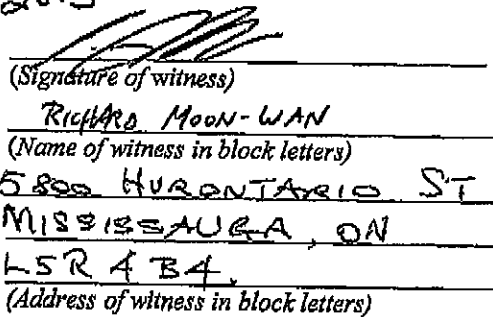 (Signature of witness)
RICHARD MOON-WAN
(Name of witness in block letters)
5800 HURONTARIO ST
MISSISSAUGA, ON
L5R 4B4.
(Address of witness in block letters)